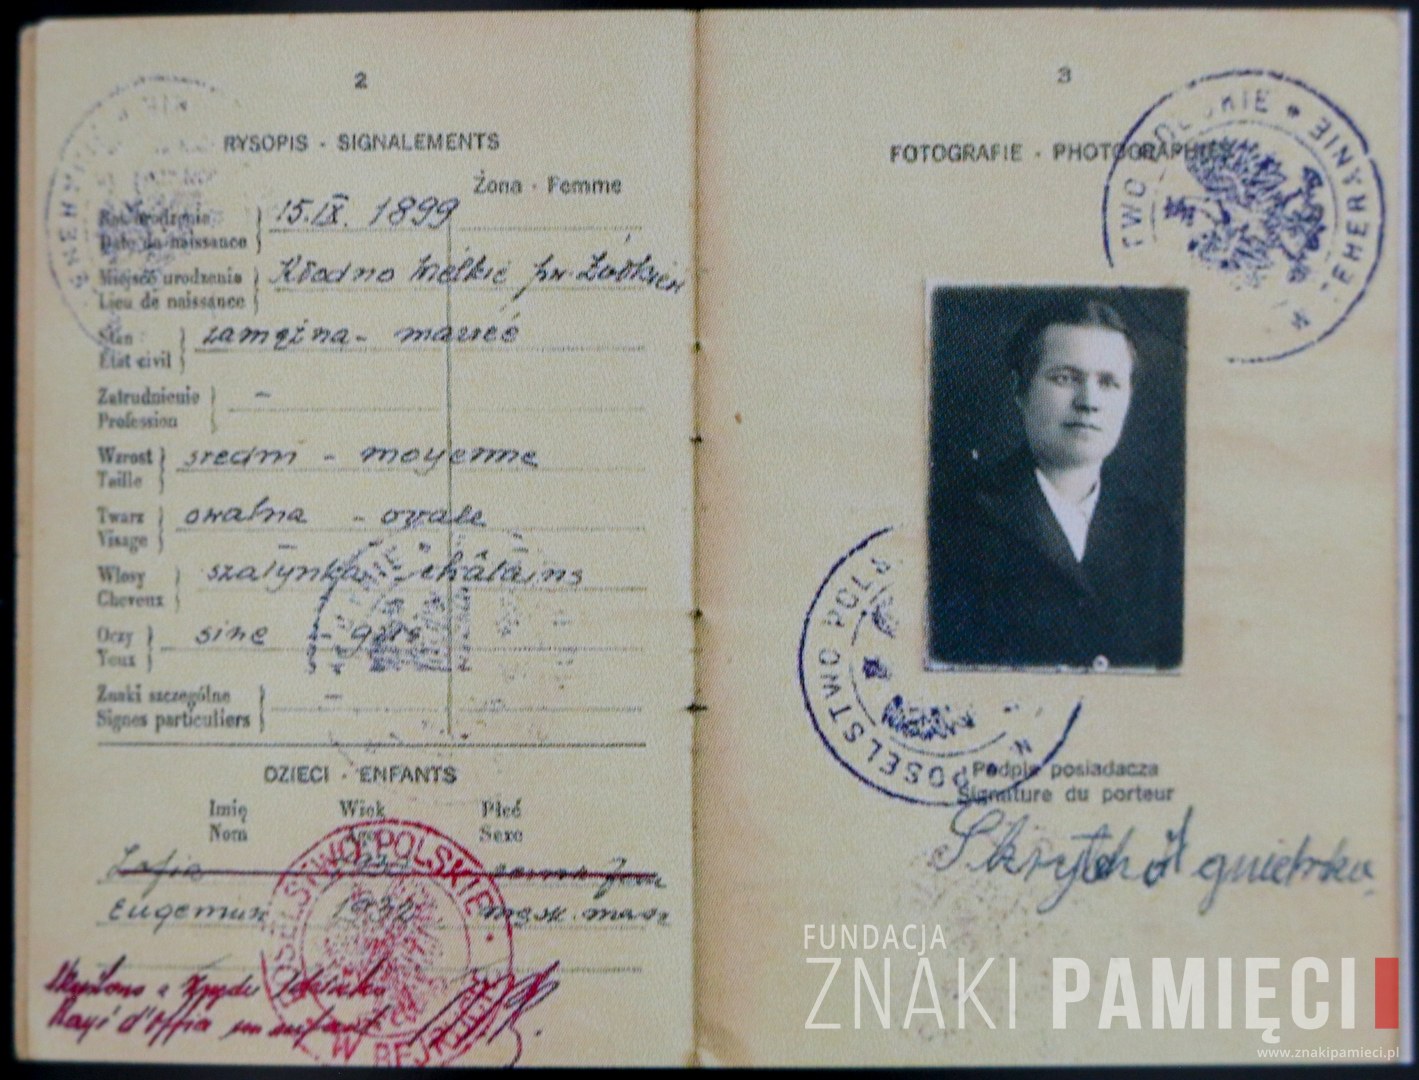 2
RYSOPIS - SIGNALEMENTS
Żona - Femme
Rok urodzenia
Date de naissance
15.IX. 1899
Miejsce urodzenia
Lieu de naissance
Kłodno Wielkie pw. Żółkiew
Stan
État civil
zamężna - mariée
Zatrudnienie
Profession
-
Wzrost
Taille
średni - moyenne
Twarz
Visage
owalna - ovale
Włosy
Cheveux
szatynka - châtains
Oczy
Yeux
sine - gris
Znaki szczególne
Signes particuliers
-
DZIECI - ENFANTS
Imię Wiek Płeć
Nom Age Sexe
Zofia
Eugeniusz 1932 męsk. masc
Skreślono z
Rayé d'office un enfant
POSELSTWO POLSKIE
W BEJRUCIE
3
FOTOGRAFIE - PHOTOGRAPHIES
POSELSTWO POLSKIE W TEHERANIE
POSELSTWO POLSKIE W
Podpis posiadacza
Signature du porteur
FUNDACJA
ZNAKI PAMIĘCI
www.znakipamieci.pl